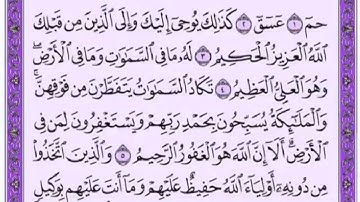 حمٓ ۝١ عٓسٓقٓ ۝٢ كَذَٰلِكَ يُوحِىٓ إِلَيْكَ وَإِلَى ٱلَّذِينَ مِن قَبْلِكَ
ٱللَّهُ ٱلْعَزِيزُ ٱلْحَكِيمُ ۝٣ لَهُۥ مَا فِى ٱلسَّمَٰوَٰتِ وَمَا فِى ٱلْأَرْضِ ۖ
وَهُوَ ٱلْعَلِىُّ ٱلْعَظِيمُ ۝٤ تَكَادُ ٱلسَّمَٰوَٰتُ يَتَفَطَّرْنَ مِن فَوْقِهِنَّ ۚ
وَٱلْمَلَٰٓئِكَةُ يُسَبِّحُونَ بِحَمْدِ رَبِّهِمْ وَيَسْتَغْفِرُونَ لِمَن فِى
ٱلْأَرْضِ ۗ أَلَآ إِنَّ ٱللَّهَ هُوَ ٱلْغَفُورُ ٱلرَّحِيمُ ۝٥ وَٱلَّذِينَ ٱتَّخَذُوا۟
مِن دُونِهِۦٓ أَوْلِيَآءَ ٱللَّهُ حَفِيظٌ عَلَيْهِمْ وَمَآ أَنتَ عَلَيْهِم بِوَكِيلٍ